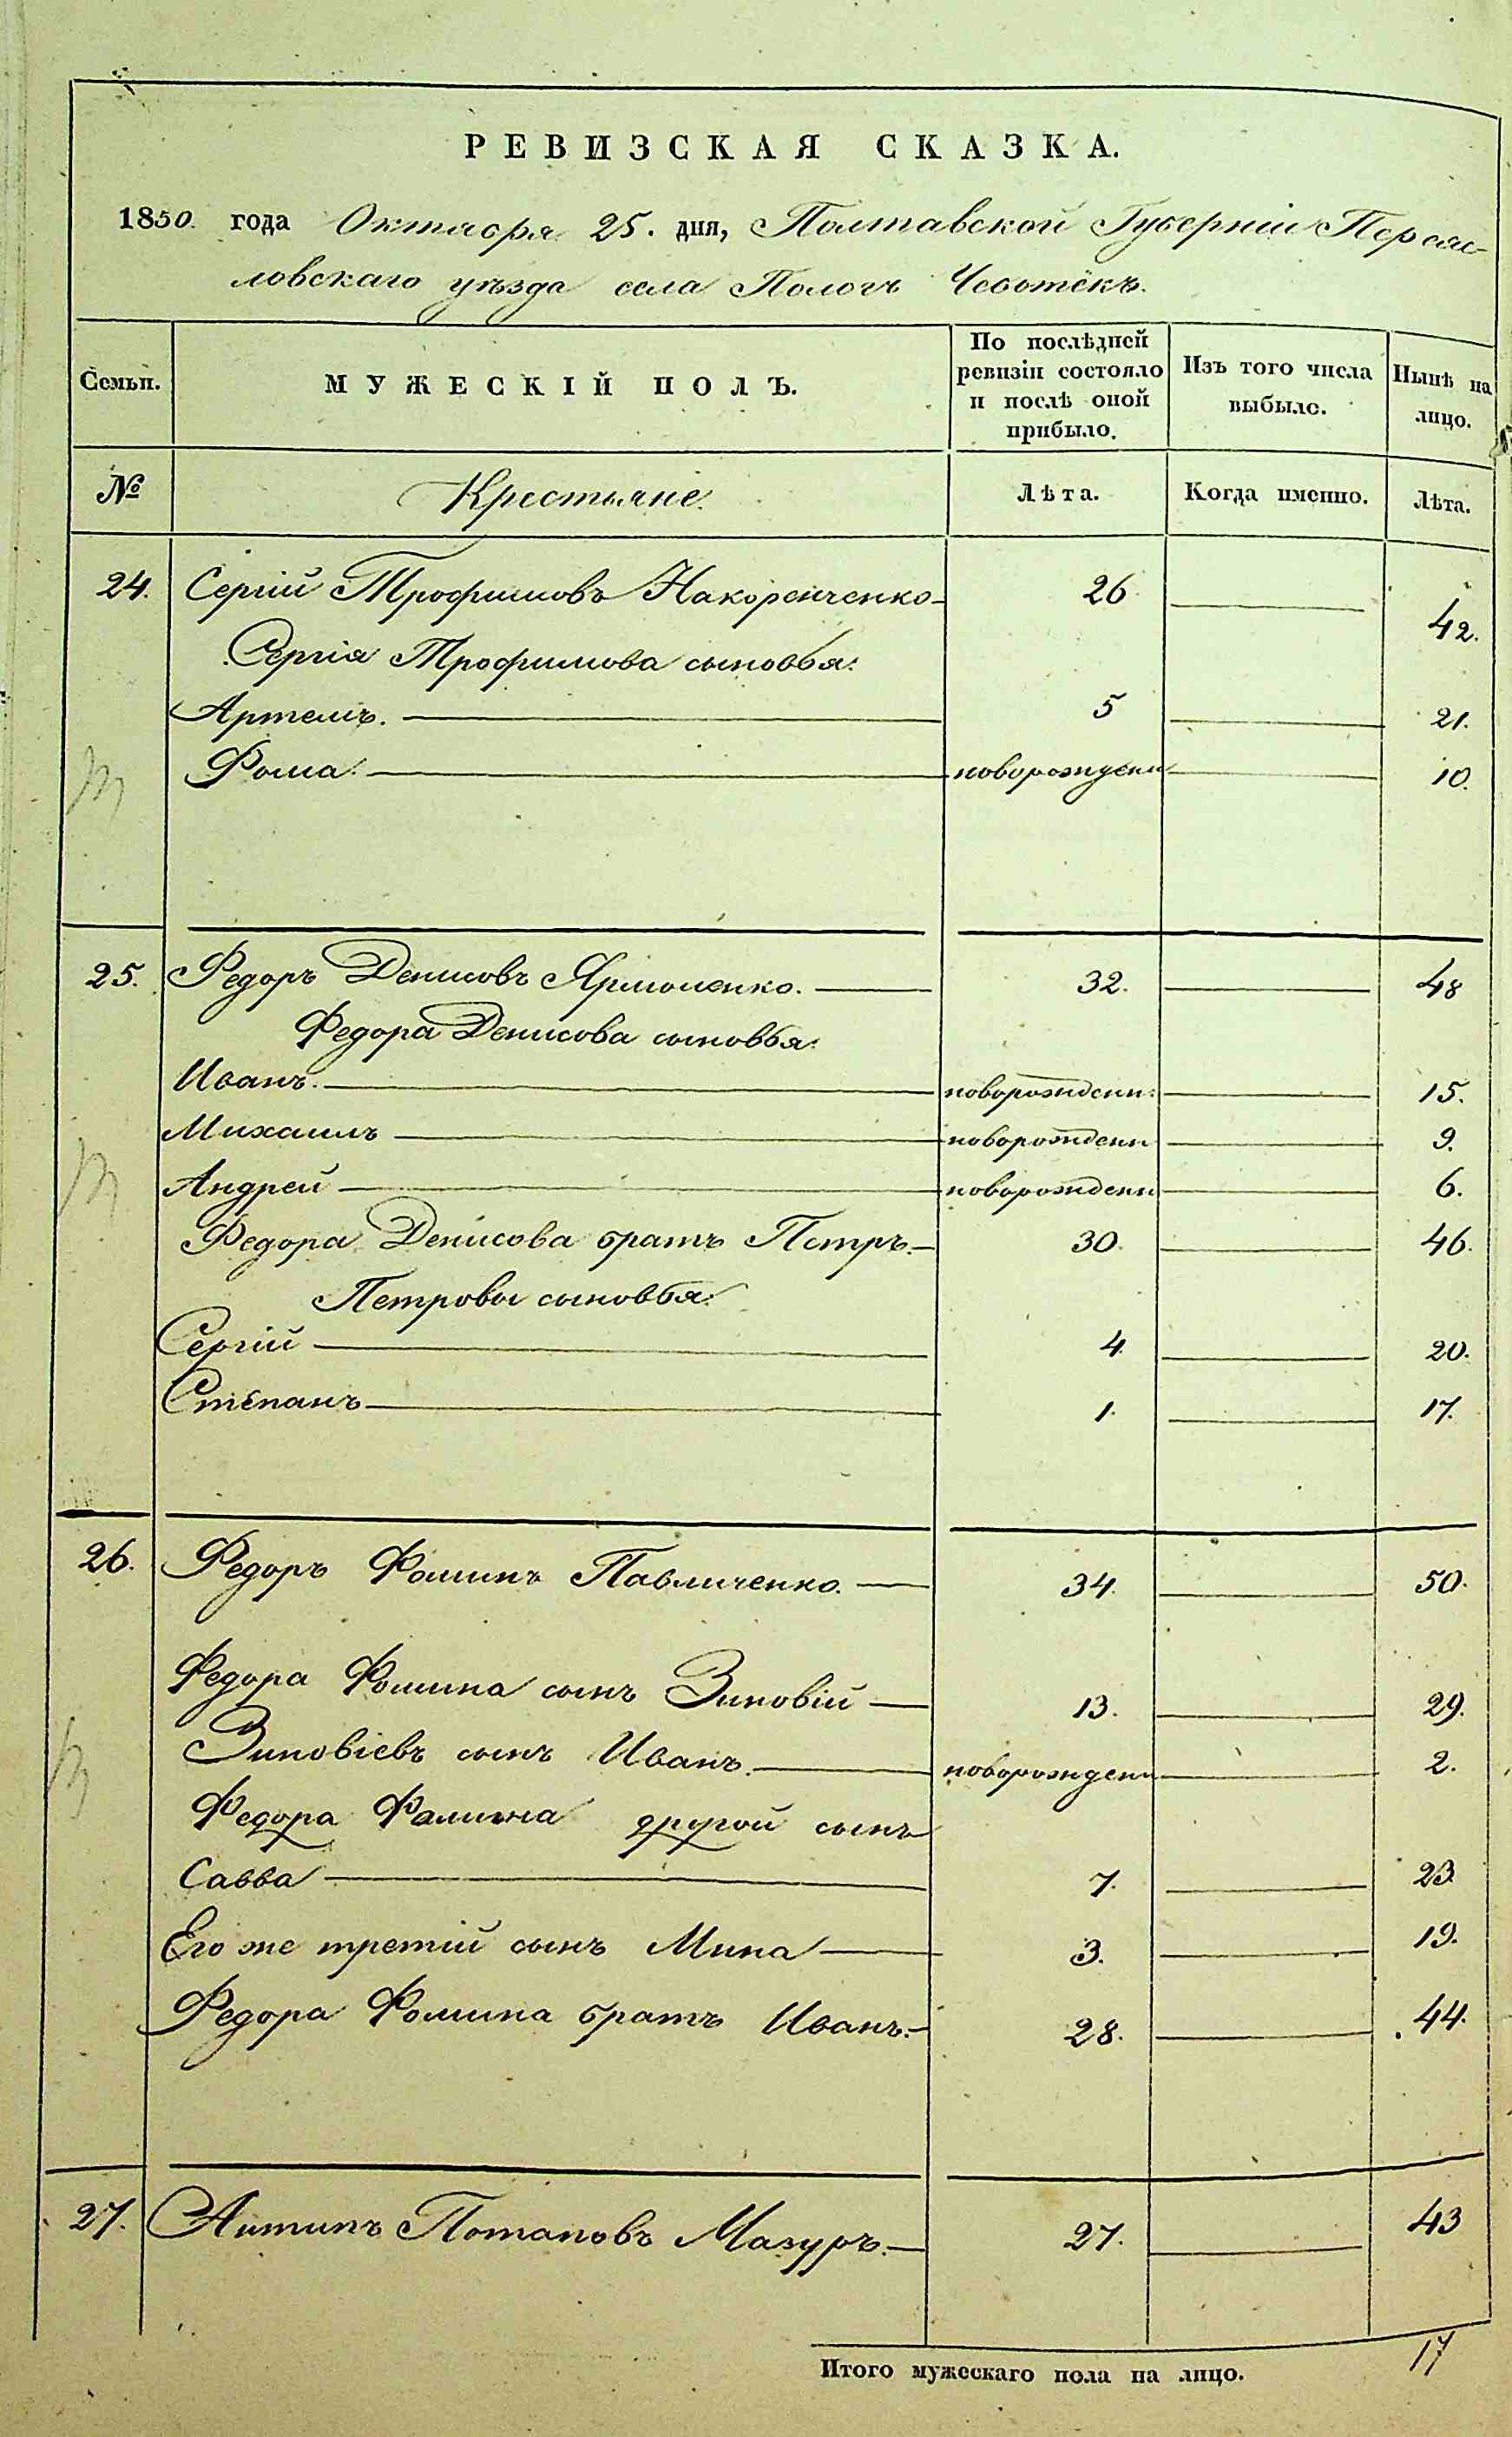 РЕВИЗСКАЯ СКАЗКА.
1850. года Октября 25. дня, Полтавской Губерніи Переяс-
ловскаго уѣзда села Пологъ Чеботёкъ.
Семьи. МУЖЕСКІЙ ПОЛЪ. По послѣдней ревизіи состояло и послѣ оной прибыло. Изъ того числа выбыло. Нынѣ на лицо.
№ Крестьяне. Лѣта. Когда именно. Лѣта.
24. Сергій Трофимовъ Накоренченко 26 42.
Сергія Трофимова сыновья:
Артемъ. 5 21.
Фома. новорожденн 10.
25. Федоръ Денисовъ Ярмоленко. 32. 48
Федора Денисова сыновья:
Иванъ. новорожденн: 15.
Михаилъ новорожденн 9.
Андрей новорожденн 6.
Федора Денисова братъ Петръ. 30. 46.
Петровы сыновья:
Сергій 4. 20.
Степанъ 1. 17.
26. Федоръ Фоминъ Павличенко. 34. 50.
Федора Фомина сынъ Зиновій 13. 29.
Зиновіевъ сынъ Иванъ. новорожденн 2.
Федора Фомина другой сынъ
Савва 7. 23
Его же третій сынъ Мина 3. 19.
Федора Фомина братъ Иванъ. 28. 44.
27. Антипъ Потаповъ Мазуръ. 27. 43
Итого мужескаго пола на лицо. 17